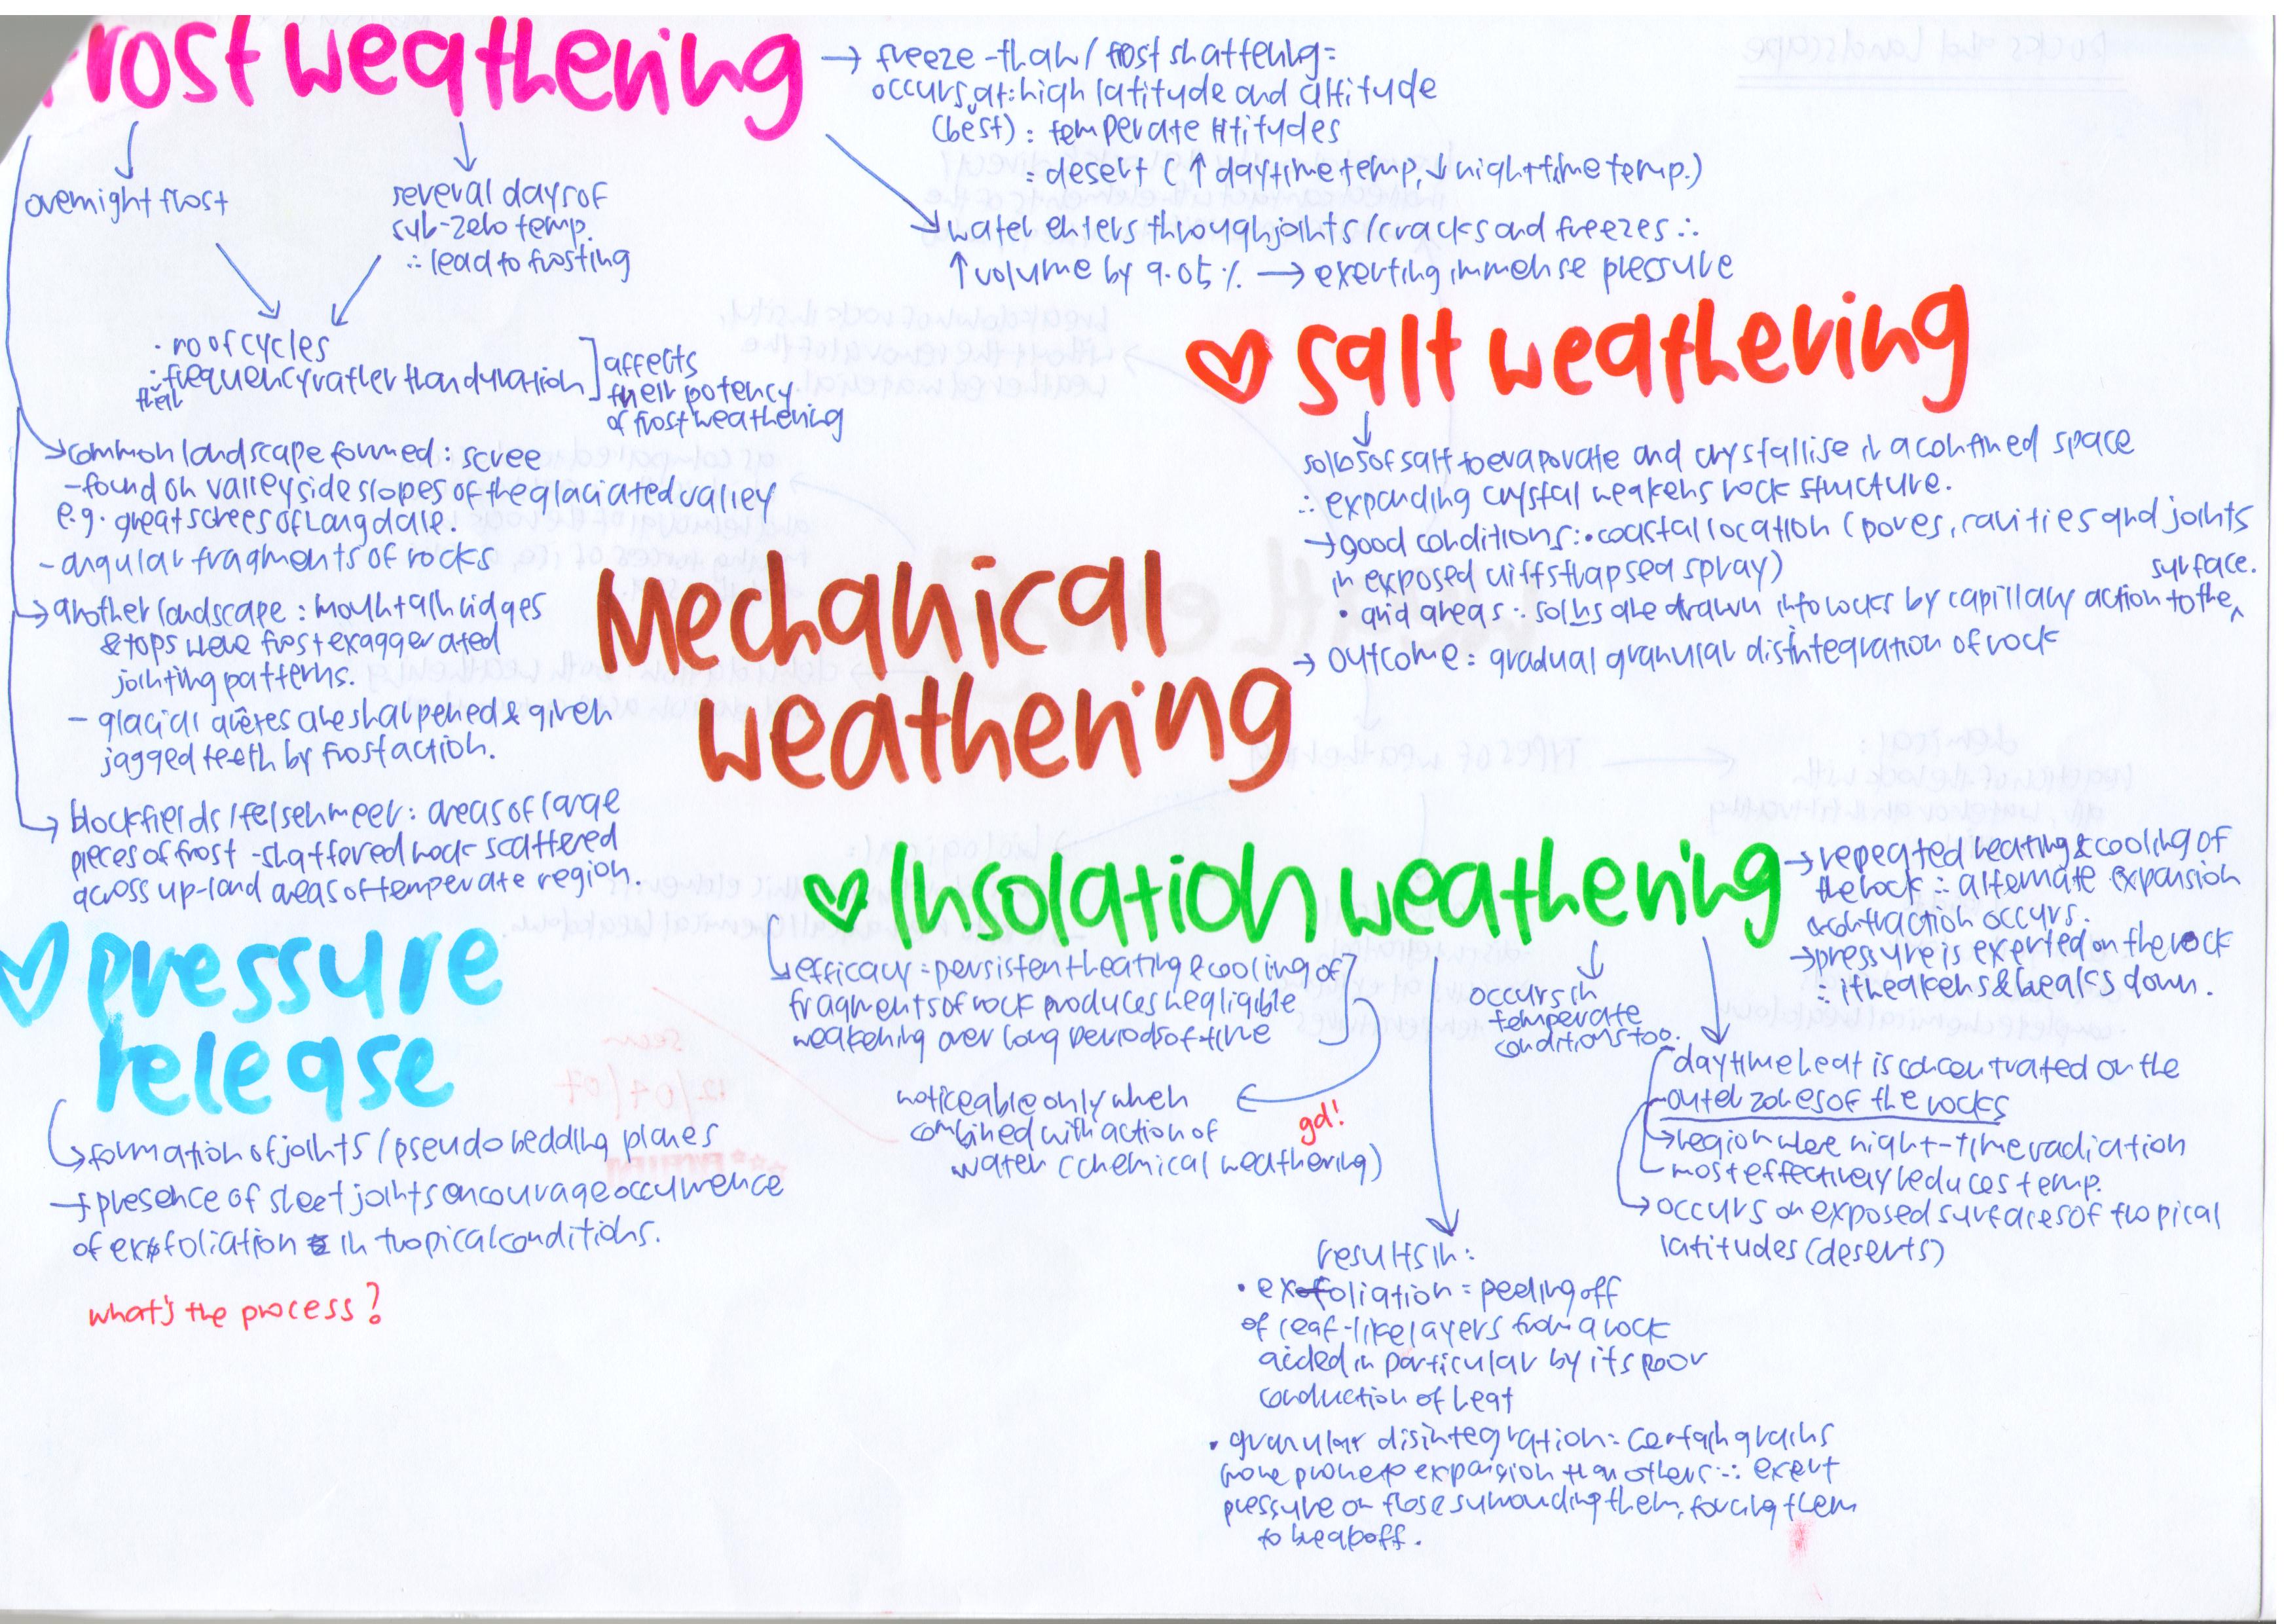 Frost weathering
→ freeze-thaw / frost shattering =
occurs at: high latitude and altitude
(best) : temperate latitudes
: desert (↑ daytime temp, ↓ night-time temp.)
overnight frost
several days of
sub-zero temp.
∴ lead to frosting
water enters through joints / cracks and freezes ∴
↑ volume by 9.05% → exerting immense pressure
· no of cycles
· their frequency rather than duration
affects
their potency
of frost weathering
common landscape formed : scree
- found on valley side slopes of the glaciated valley
e.g. great screes of Langdale.
- angular fragments of rocks
another landscape : mountain ridges
& tops were frost exaggerated
jointing patterns.
- glacial arêtes are sharpened & given
jagged teeth by frost action.
blockfields / felsenmeer : areas of large
pieces of frost-shattered rock scattered
across up-land areas of temperate region.
♡ salt weathering
solns of salt to evaporate and crystallise in a confined space
∴ expanding crystal weakens rock structure.
→ good conditions : • coastal location (pores, cavities and joints
in exposed cliffs trap sea spray)
• arid areas : solns are drawn into rocks by capillary action to the surface.
→ outcome : gradual granular disintegration of rock
Mechanical
weathering
♡ Insolation weathering
→ repeated heating & cooling of
the rock ∴ alternate expansion
contraction occurs.
→ pressure is exerted on the rock
∴ it weakens & breaks down.
efficacy : persistent heating & cooling of
fragments of rock produces negligible
weakening over long periods of time
noticeable only when
combined with action of
water (chemical weathering)
gd!
occurs in
temperate
conditions too.
daytime heat is concentrated on the
outer zones of the rocks
→ region where night-time radiation
most effectively reduces temp.
→ occurs on exposed surfaces of tropical
latitudes (deserts)
results in :
• exfoliation = peeling off
of leaf-like layers from a rock
aided in particular by its poor
conduction of heat
• granular disintegration : certain grains
more prone to expansion than others ∴ exert
pressure on those surrounding them, forcing them
to break off.
♡ pressure
release
→ formation of joints / pseudo bedding planes
→ presence of sheet joints encourage occurrence
of exfoliation in tropical conditions.
what's the process?